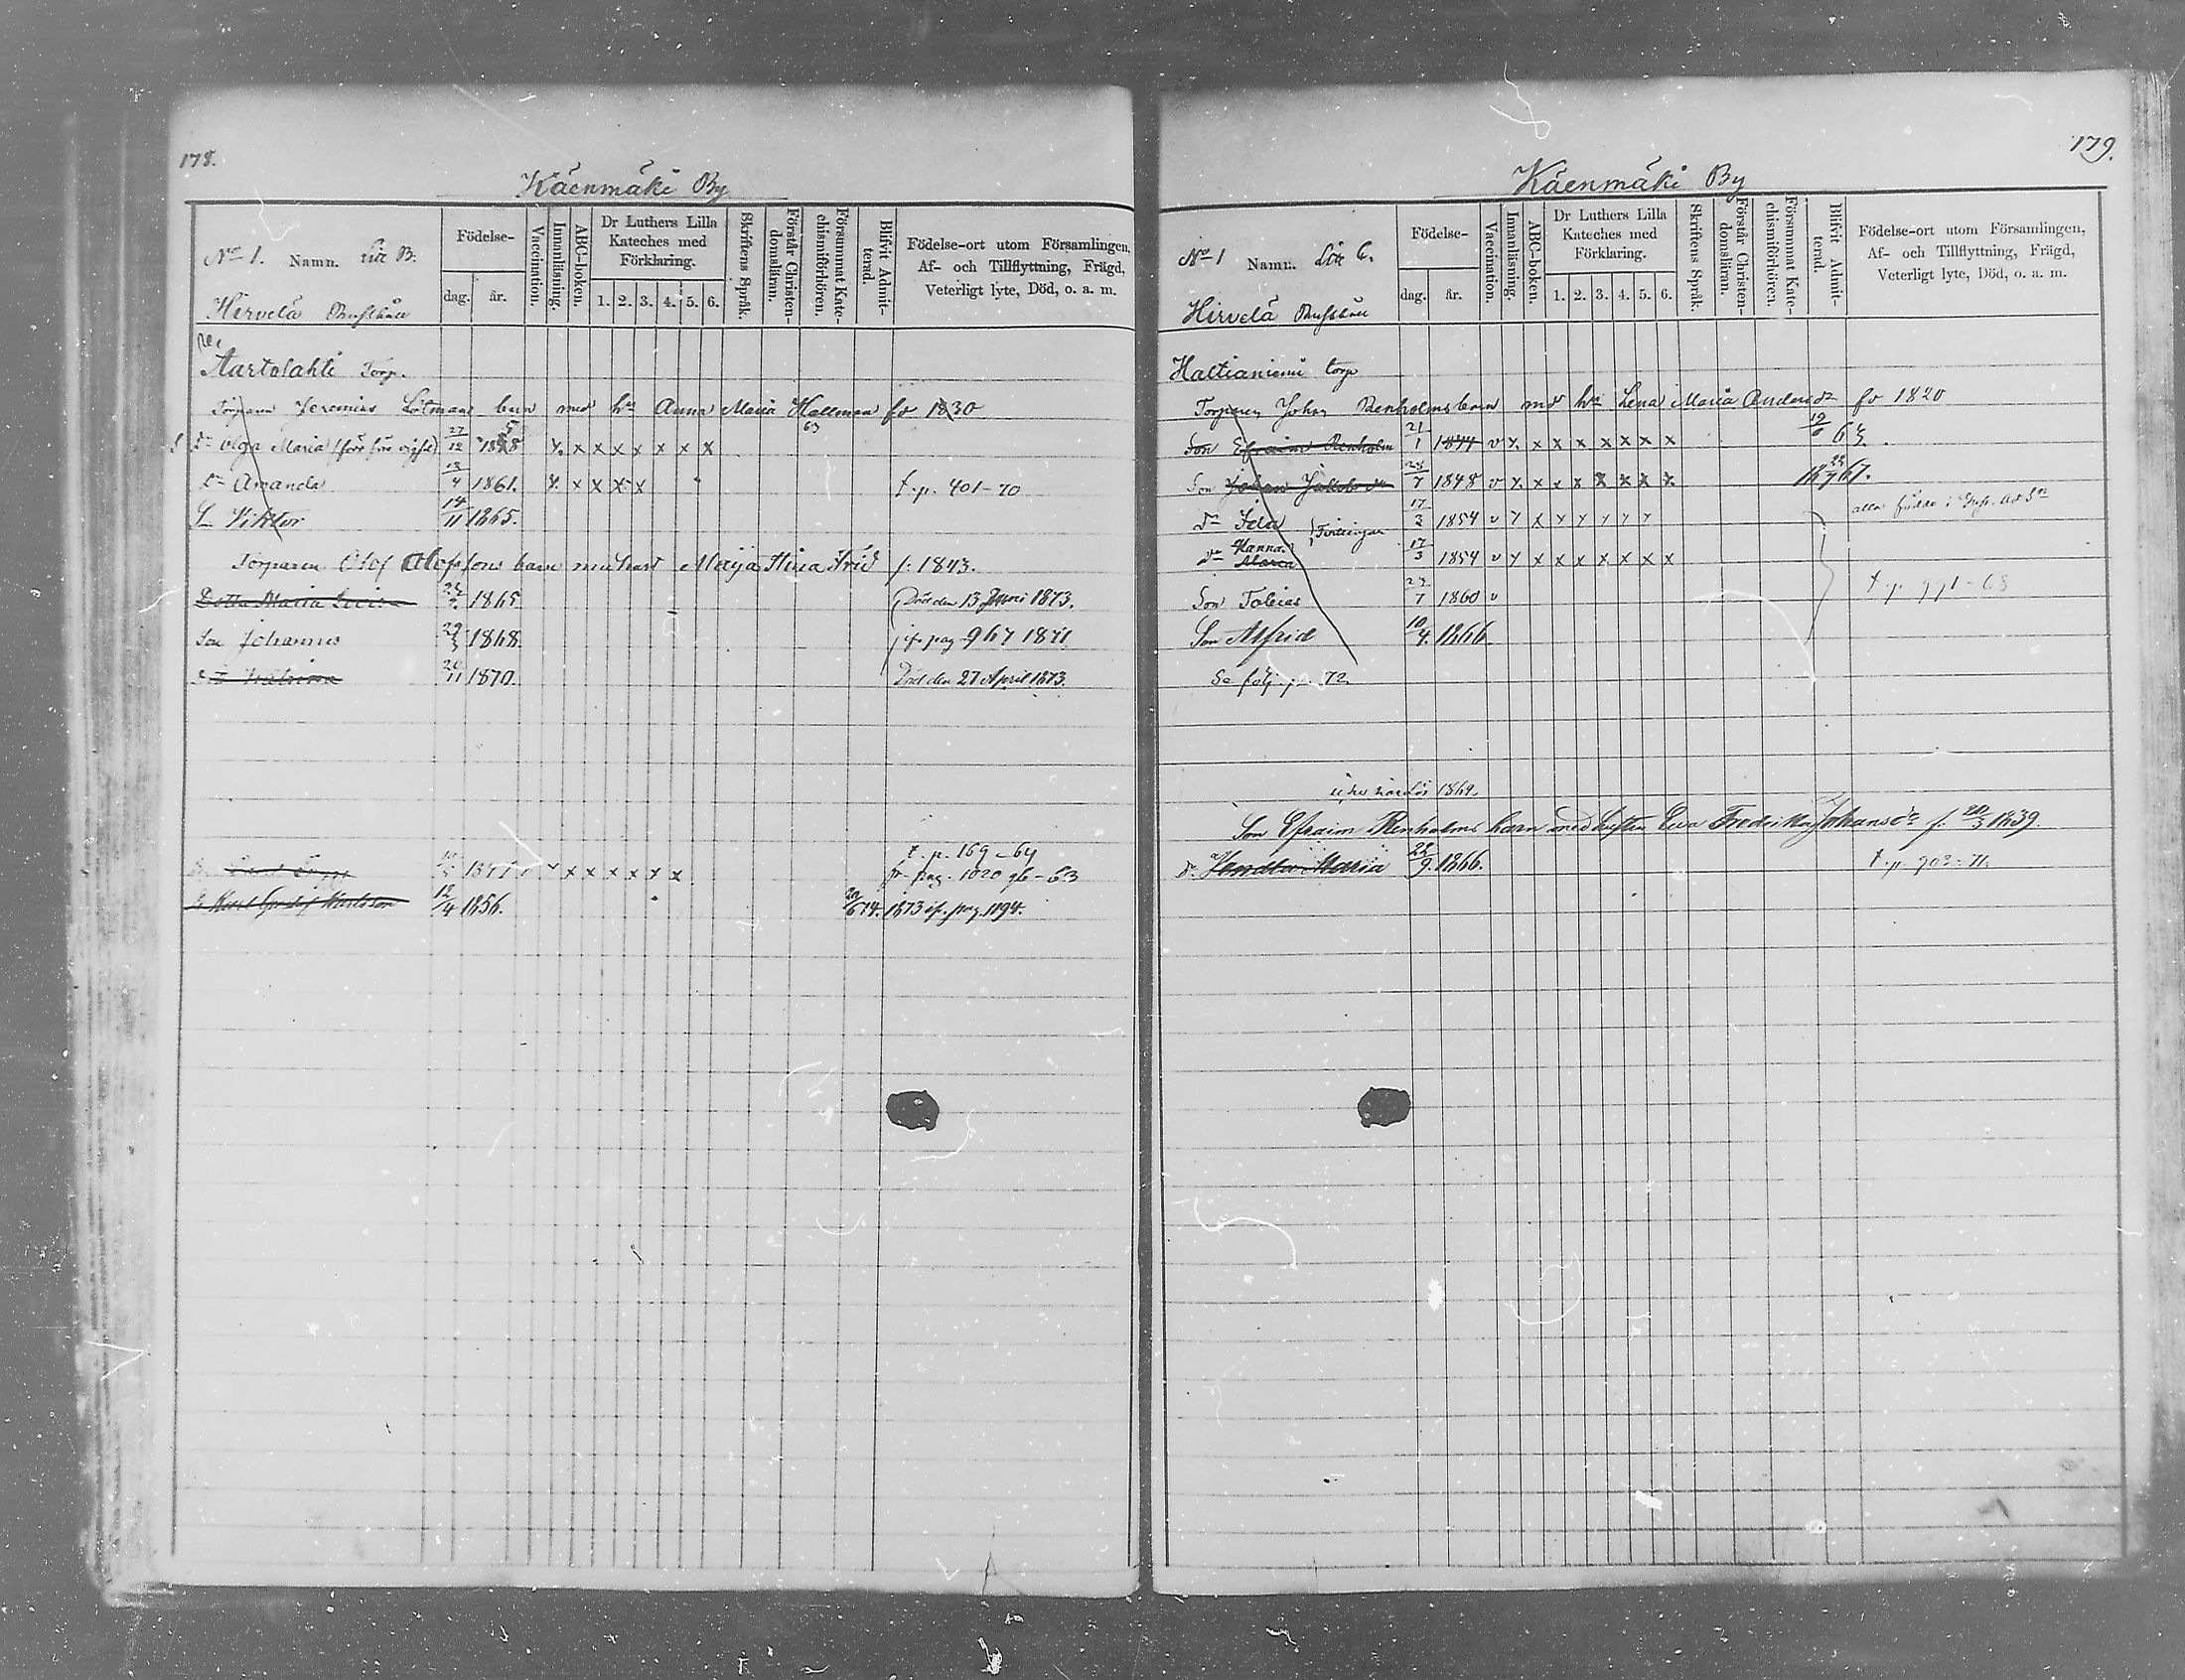 178.
Käenmäki By
No 1. Namn. Litt B.
Hirvelä
Födelse-
dag. år.
Vaccination.
Innanläsning.
ABC-boken.
Dr Luthers Lilla Kateches med Förklaring.
1. 2. 3. 4. 5. 6.
Skriftens Språk.
Förstår Christendomsläran.
Försummat Katechismiförhören.
Blifvit Admitterad.
Födelse-ort utom Församlingen, Af- och Tillflyttning, Frägd, Veterligt lyte, Död, o. a. m.
Aartolahti Torp.
Torparen Jeremias barn med hu Anna Maria Hallman fd 1830
Dr Olga Maria 27/12 x x x x x x x
Dr Amanda 13/4 1861. x x x x t. p. 401-70
S. Viktor 14/11 1865.
Torparen Olof Olofssons barn med hust Maija Stina Frid f. 1843.
Dotta Maria 1865 Död den 13 Juni 1873.
Son Johannes 29/3 1868. pag 967 1871
20/11 1870. Död den 27 April 1873.
t. p. 169-64
x x x x x x fr. pag. 1020 63
S. Karl Gustaf Karlsson 12/4 1856. 20/6 74. 1873 if. pag. 1194.
179.
Käenmäki By
No 1 Namn. Litt C.
Hirvelä
Födelse-
dag. år.
Vaccination.
Innanläsning.
ABC-boken.
Dr Luthers Lilla Kateches med Förklaring.
1. 2. 3. 4. 5. 6.
Skriftens Språk.
Förstår Christendomsläran.
Försummat Katechismiförhören.
Blifvit Admitterad.
Födelse-ort utom Församlingen, Af- och Tillflyttning, Frägd, Veterligt lyte, Död, o. a. m.
Haltianiemi torp
Torparen Johan Renholms barn med hu Lena Maria Andersdr fd 1820
Son Efraim Renholm 21/1 1844 v x x x x x x x
Son Johan 28/7 1848 v x x x x x x x 67.
Dr Ida Tvillingar 17/3 1854 v x x x x x x
Dr Hanna Maria 17/3 1854 v x x x x x x x
Son Tobias 27/7 1860 v t. p. 991-68
Son Alfrid 10/4 1866
Se följ p. 72
1869.
Son Efraim Renholms barn med hustru Eva Fredrika Johansdr f. 20/3 1839.
Dr Vendla Maria 28/9 1866. t. p. 903-71